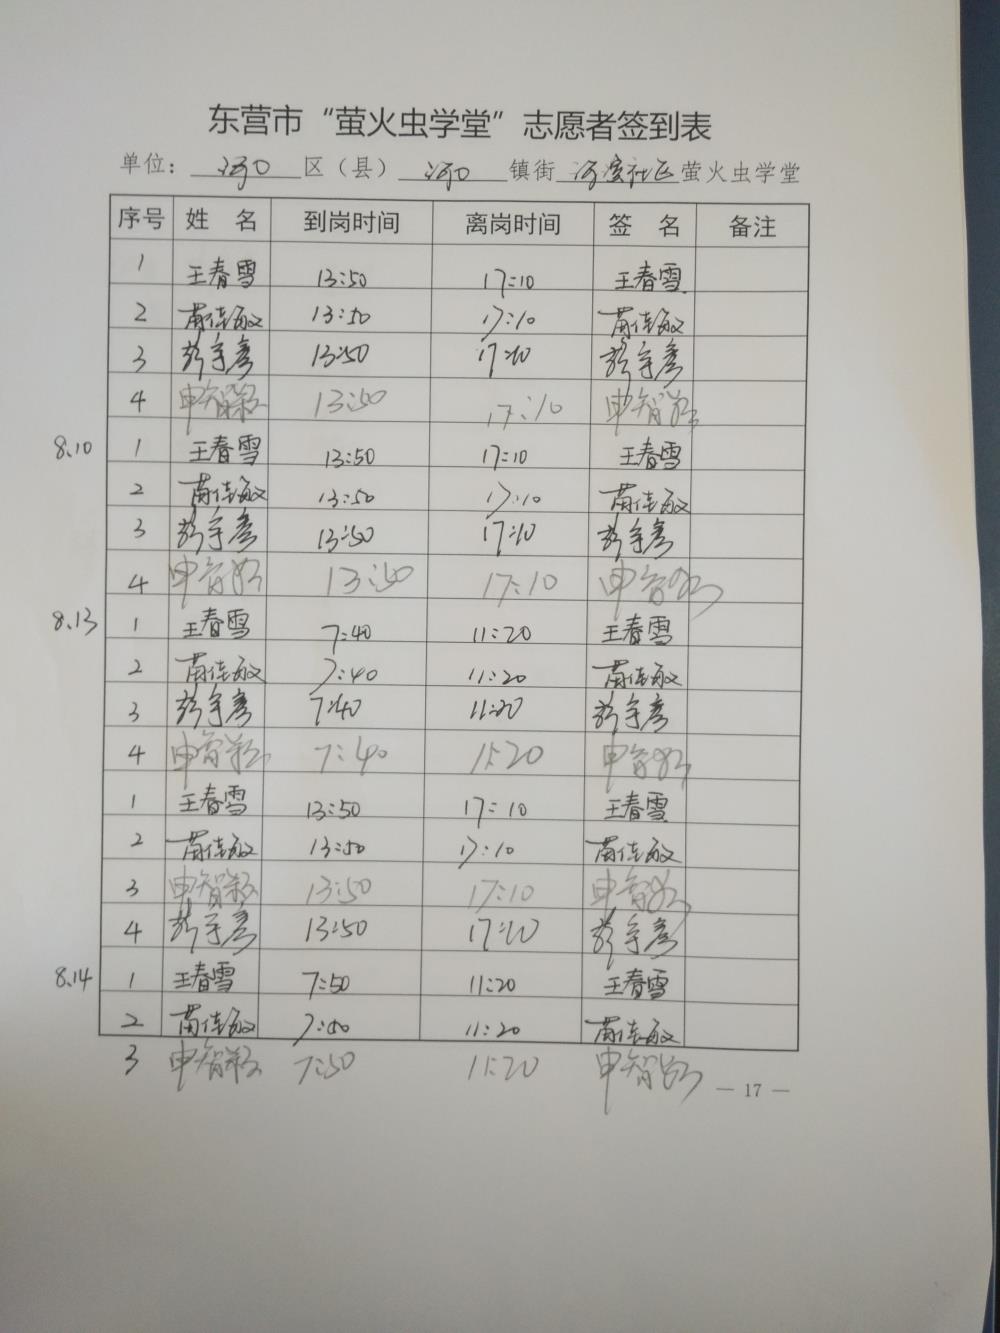 东营市“萤火虫学堂”志愿者签到表
单位：河口区（县）河口镇街河滨社区萤火虫学堂
序号 姓 名 到岗时间 离岗时间 签 名 备注
1 王春雪 13:50 17:10 王春雪
2 苗佳敏 13:50 17:10 苗佳敏
3 宇彦 13:50 17:10 宇彦
4 申智 13:50 17:10 申智
8.10 1 王春雪 13:50 17:10 王春雪
2 苗佳敏 13:50 17:10 苗佳敏
3 宇彦 13:50 17:10 宇彦
4 申智 13:50 17:10 申智
8.13 1 王春雪 7:40 11:20 王春雪
2 苗佳敏 7:40 11:20 苗佳敏
3 宇彦 7:40 11:20 宇彦
4 申智 7:40 11:20 申智
1 王春雪 13:50 17:10 王春雪
2 苗佳敏 13:50 17:10 苗佳敏
3 申智 13:50 17:10 申智
4 宇彦 13:50 17:10 宇彦
8.14 1 王春雪 7:50 11:20 王春雪
2 苗佳敏 7:50 11:20 苗佳敏
3 申智 7:50 11:20 申智
— 17 —